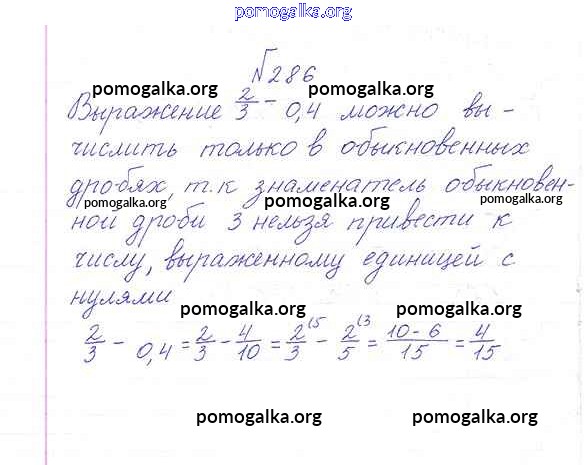 pomogalka.org
№286
pomogalka.org pomogalka.org
Выражение 2/3 - 0,4 можно вы-
числить только в обыкновенных
дробях, т.к знаменатель обыкновен-
pomogalka.org pomogalka.org pomogalka.org
ной дроби 3 нельзя привести к
числу, выраженному единицей с
нулями
pomogalka.org pomogalka.org
2/3 - 0,4 = 2/3 - 4/10 = 2/3 (5 - 2/5 (3 = 10-6/15 = 4/15
pomogalka.org pomogalka.org